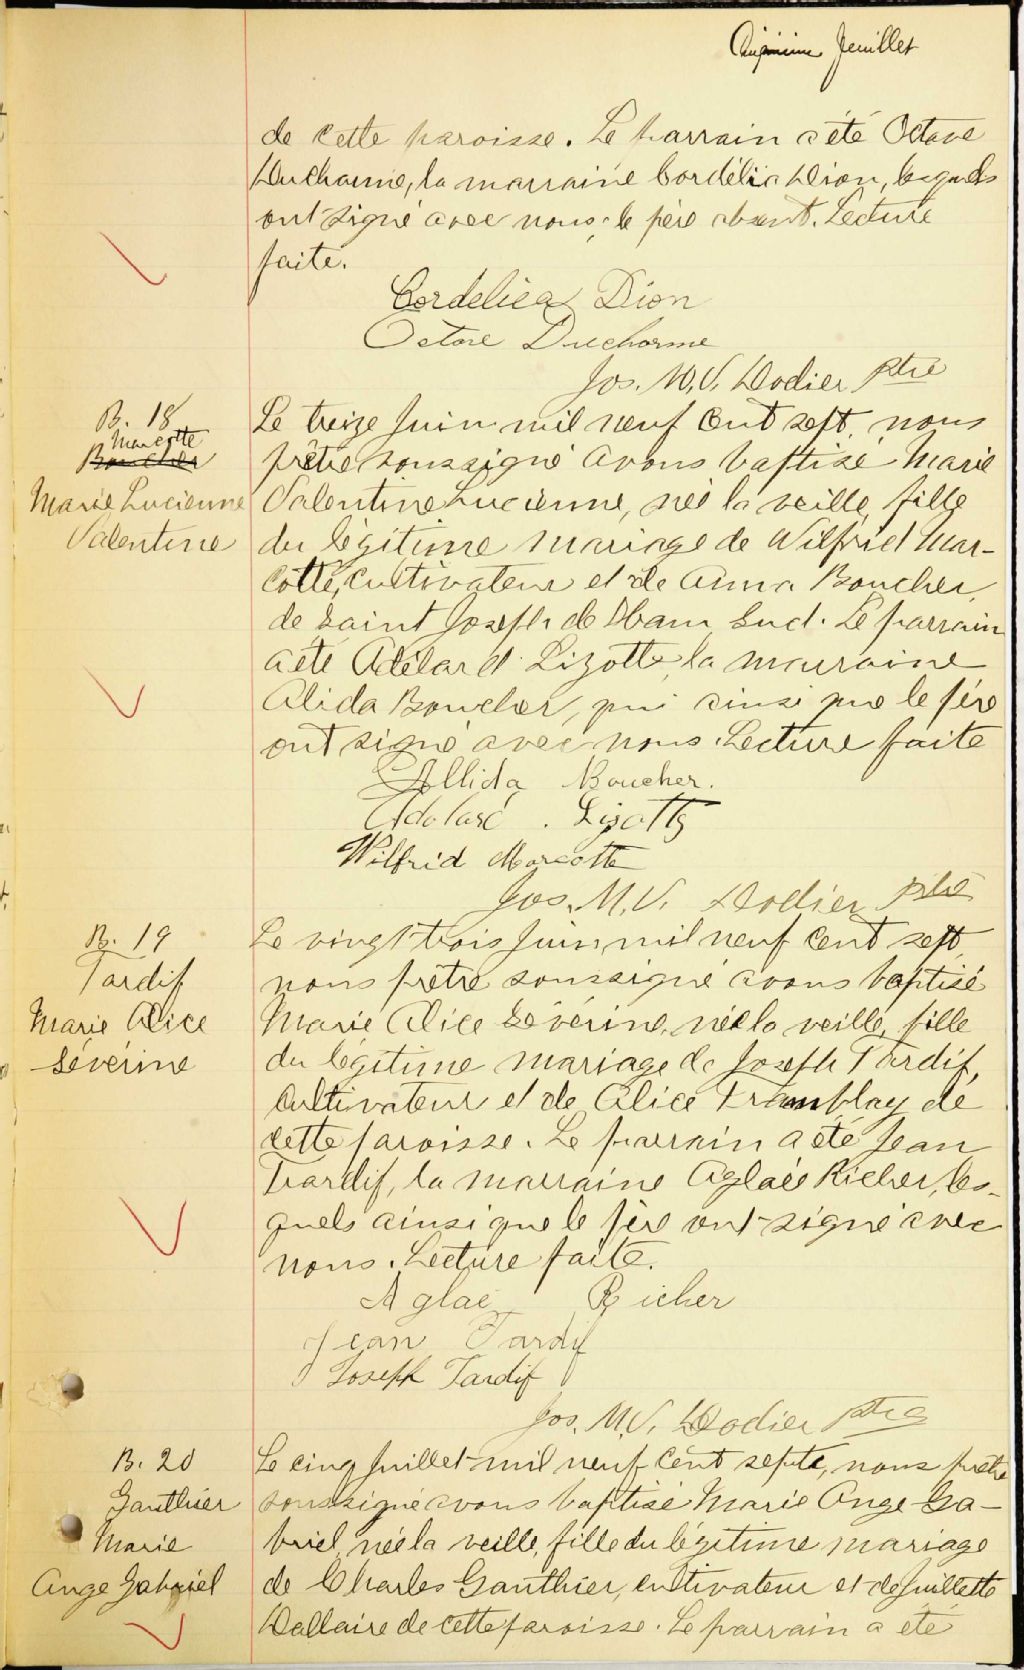 feuillet
de cette paroisse. Le parrain a été Octave
Ducharme, la marraine Cordélia Dion, lesquels
ont signé avec nous, le père absent. Lecture
faite.
Cordeliea Dion
Octave Ducharme
Jos. M. V. Dodier Ptre
B. 18
Marcotte
Boucher
Marie Lucienne
Valentine
Le treize Juin mil neuf cent sept, nous
prêtre soussigné avons baptisé Marie
Valentine Lucienne, née la veille, fille
du légitime mariage de Wilfrid Mar-
cotte, cultivateur et de Anna Boucher,
de Saint Joseph de Ham Sud. Le parrain
a été Adélard Lizotte, la marraine
Alida Boucher, qui ainsi que le père
ont signé avec nous. Lecture faite
Allida Boucher.
Adelard Lizotte
Wilfrid Marcotte
Jos. M. V. Dodier Ptre
B. 19
Tardif
Marie Alice
Sévérine
Le vingt-trois Juin mil neuf cent sept,
nous prêtre soussigné avons baptisé
Marie Alice Sévérine, née la veille, fille
du légitime mariage de Joseph Tardif,
cultivateur et de Alice Tramblay de
cette paroisse. Le parrain a été Jean
Tardif, la marraine Aglaée Richer, les-
quels ainsi que le père ont signé avec
nous. Lecture faite.
Aglaé Richer
Jean Tardif
Joseph Tardif
Jos. M. V. Dodier Ptre
B. 20
Gauthier
Marie
Ange Gabriel
Le cinq Juillet mil neuf cent septe, nous prêtre
soussigné avons baptisé Marie Ange Ga-
briel, née la veille, fille du légitime mariage
de Charles Gauthier, cultivateur et de Juillette
Dallaire de cette paroisse. Le parrain a été